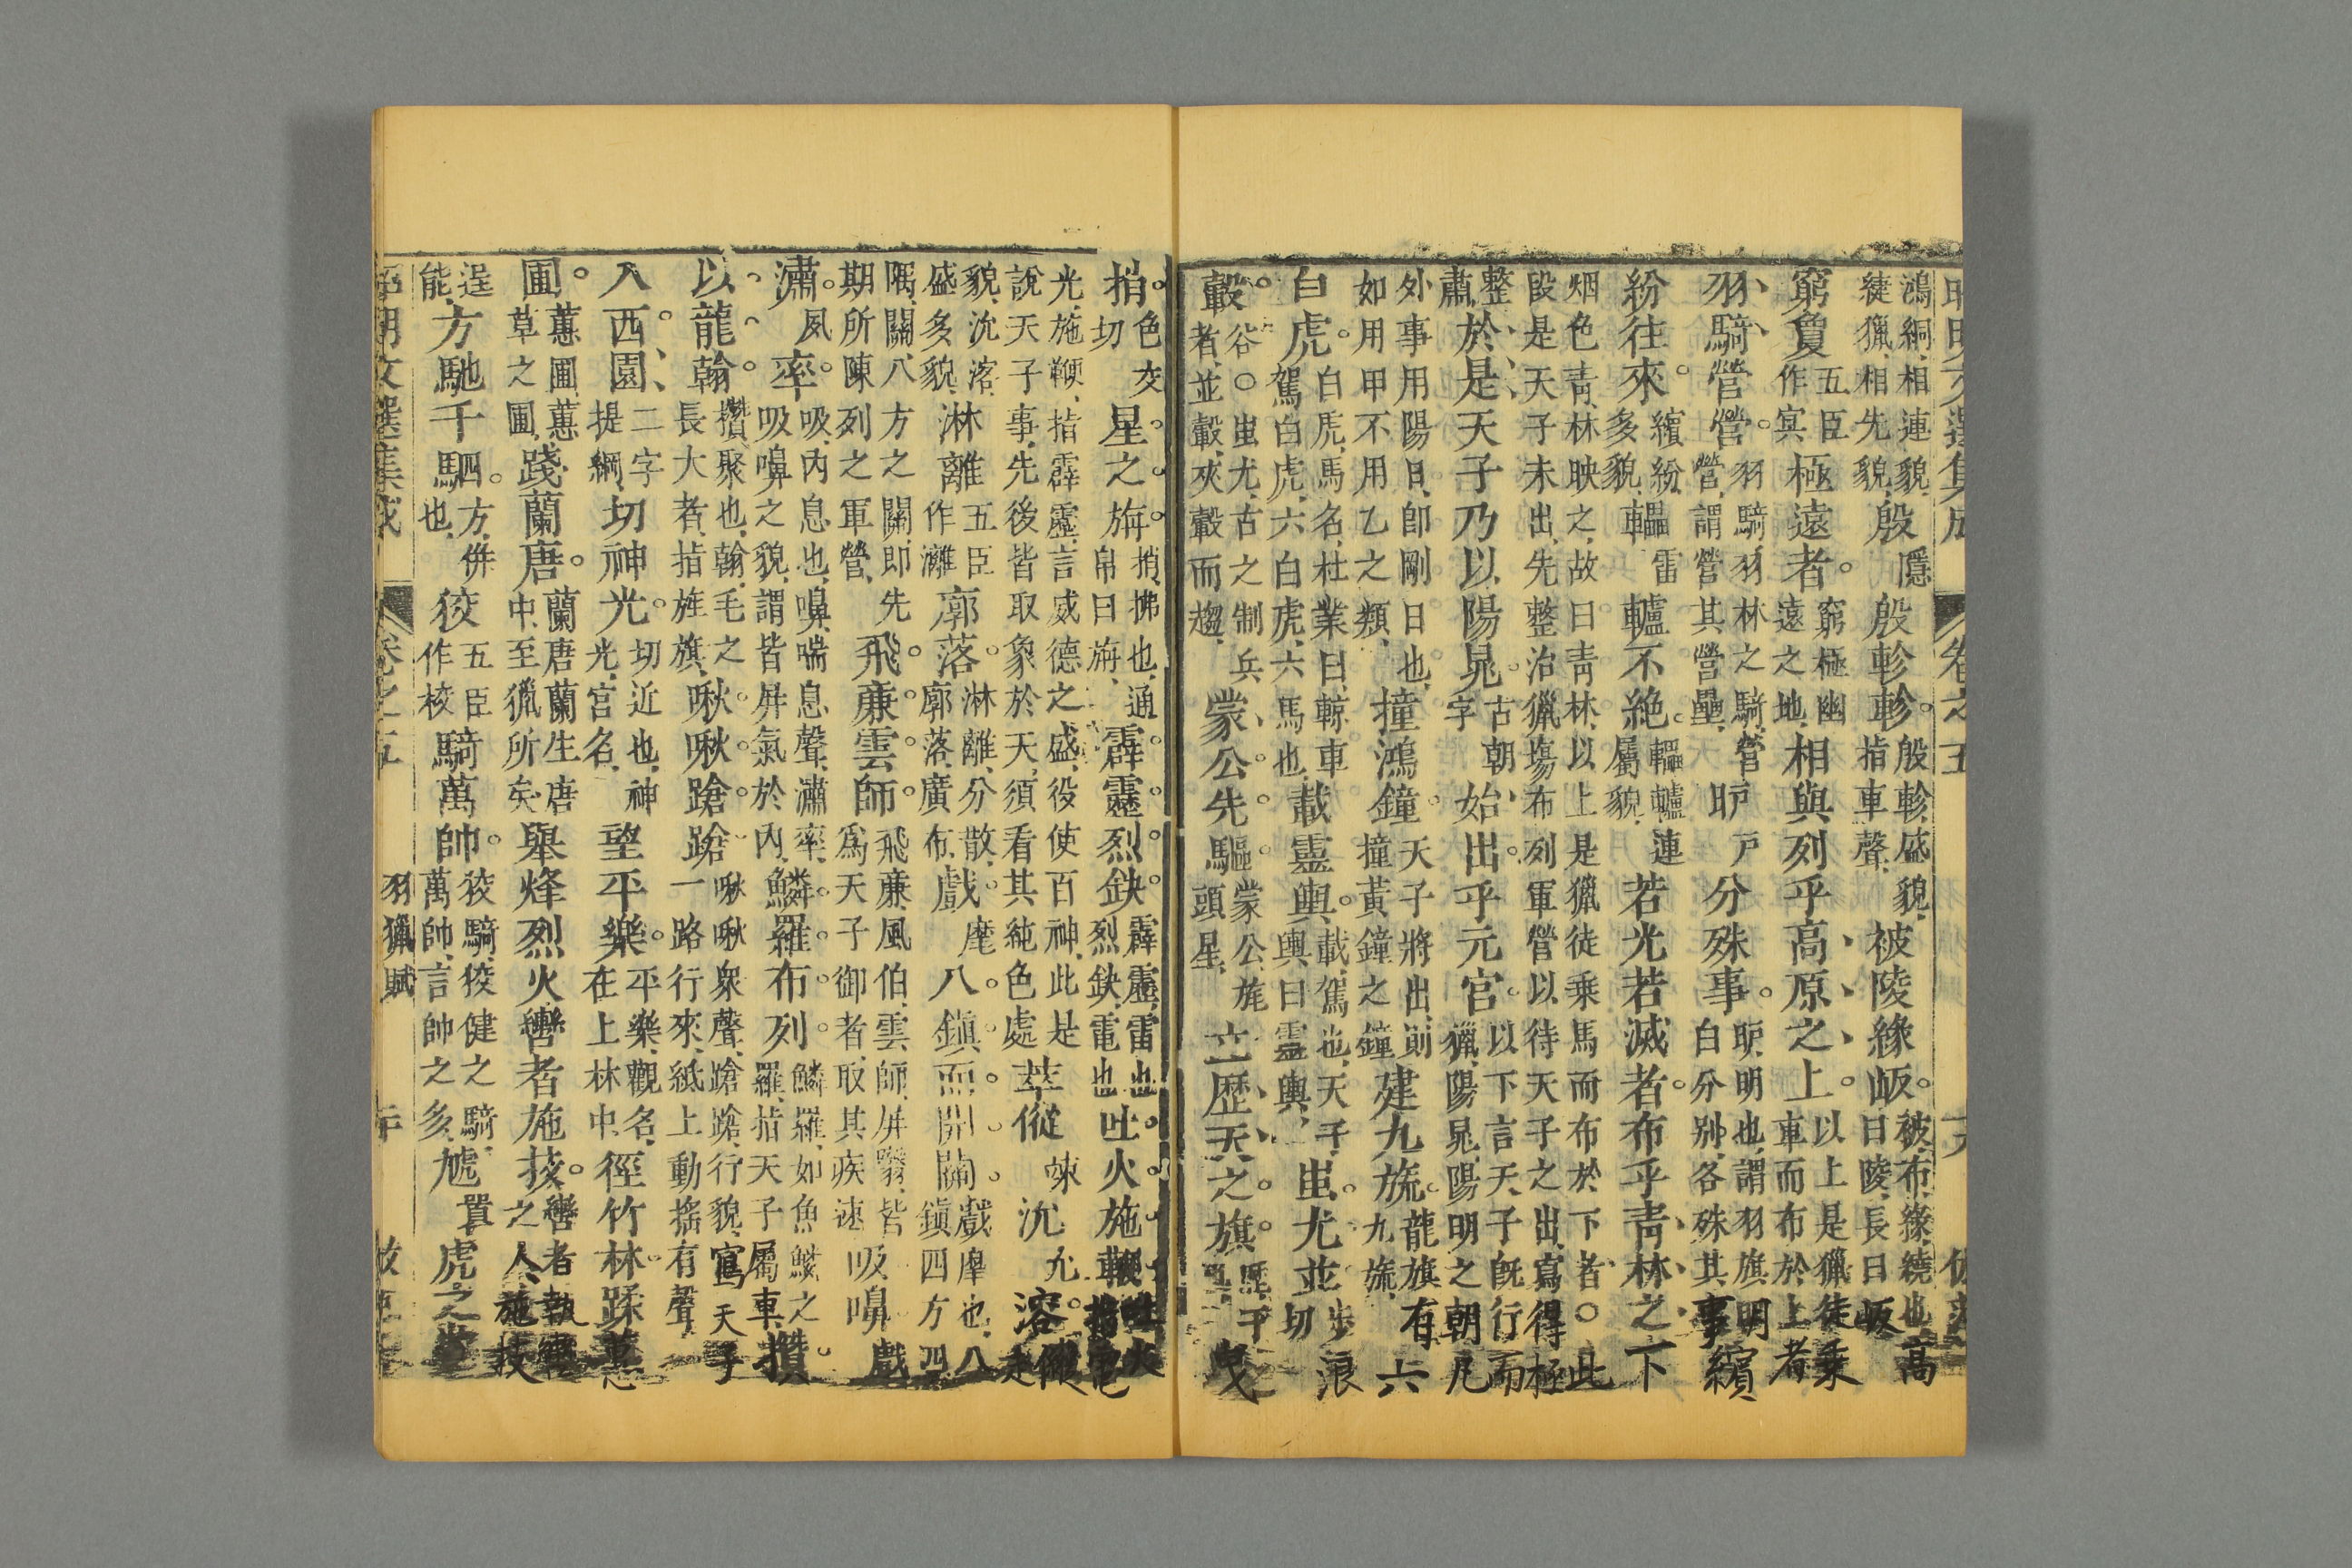 鴻絅、相連貌、緁獵、相先貌、殷隱殷軫軫。殷軫、盛貌、指車聲、被陵緣岅。被、布、緣、繞也、高曰陵、長曰岅
窮夐五臣作㝠極遠者。窮極幽遠之地、相與列乎高原之上。以上是獵徒乘車而布於上者
羽騎營營。羽騎、羽林之騎、營營、謂營其營壘、昈戶分殊事。昈、明也、謂羽旗明白分別、各殊其事繽
紛往來。繽紛、多貌、轠雷轤不絶。轠轤、連屬貌、若光若滅者。布乎靑林之下
烟色靑、林映之、故曰靑林、以上是獵徒乘馬而布於下者。○此段是天子未出、先整治獵塲布列軍營以待天子之出、寫得極
整肅、於是天子乃以陽晁。古朝字始出乎元宫。以下言天子旣行而獵、陽晁、陽明之朝、凡
外事用陽日、卽剛日也、如用甲不用乙之類、撞鴻鐘。天子將出、則撞黃鐘之鐘建九旒。龍旗有九旒、六
白虎。白虎、馬名、杜業曰、輬車駕白虎、六白虎、六馬也、載靈輿。載、駕也、天子輿曰靈輿、蚩尤並步浪切
轂。谷○蚩尤、古之制兵者、並轂、夾轂而趨、蒙公先驅。蒙公、旄頭星、立歷天之旗。曳
捎色交切星之旃。捎、拂也、通帛曰旃、霹靂烈缺。霹靂、雷也、烈缺、電也吐火施鞭。吐火
光施鞭、指霹靂、言威德之盛、役使百神、此是說天子事、先後皆取象於天、須看其純色處萃傱竦沇允。溶
貌、沇溶、盛多貌、淋離五臣作灕廓落。淋離、分散、廓落、廣布、戲。麾八。鎭而開關。戲、麾也、八鎭、四方四
隅、關、八方之關、卽先期所陳列之軍營、飛亷雲師。飛亷、風伯、雲師、屏翳、皆爲天子御者、取其疾速吸嚊戲
潚。夙率。吸、內息也、嚊、喘息聲、潚率、吸嚊之貌、謂皆屏氣於內、鱗羅布列。鱗羅、如魚鱗之羅、指天子屬車、攢
以龍翰。攢、聚也、翰、毛之長大者、指旌旗、啾啾蹌蹌啾啾、衆聲、蹌蹌、行貌、寫天子一路行來、紙上動搖有聲、
入西園。二字提綱、切神光。切、近也、神光、宫名、望平樂。平樂、觀名、在上林中、徑竹林。蹂蕙
圃。蕙圃、蕙草之圃、踐蘭唐。蘭唐、蘭生唐中、至獵所矣、舉烽烈火轡者施技。轡者、執轡之人、施技
逞能、方馳千駟。方、併也、狡五臣作校騎萬帥。狡騎、狡健之騎、萬帥、言帥之多、虓虎之
卷之五　羽獵賦